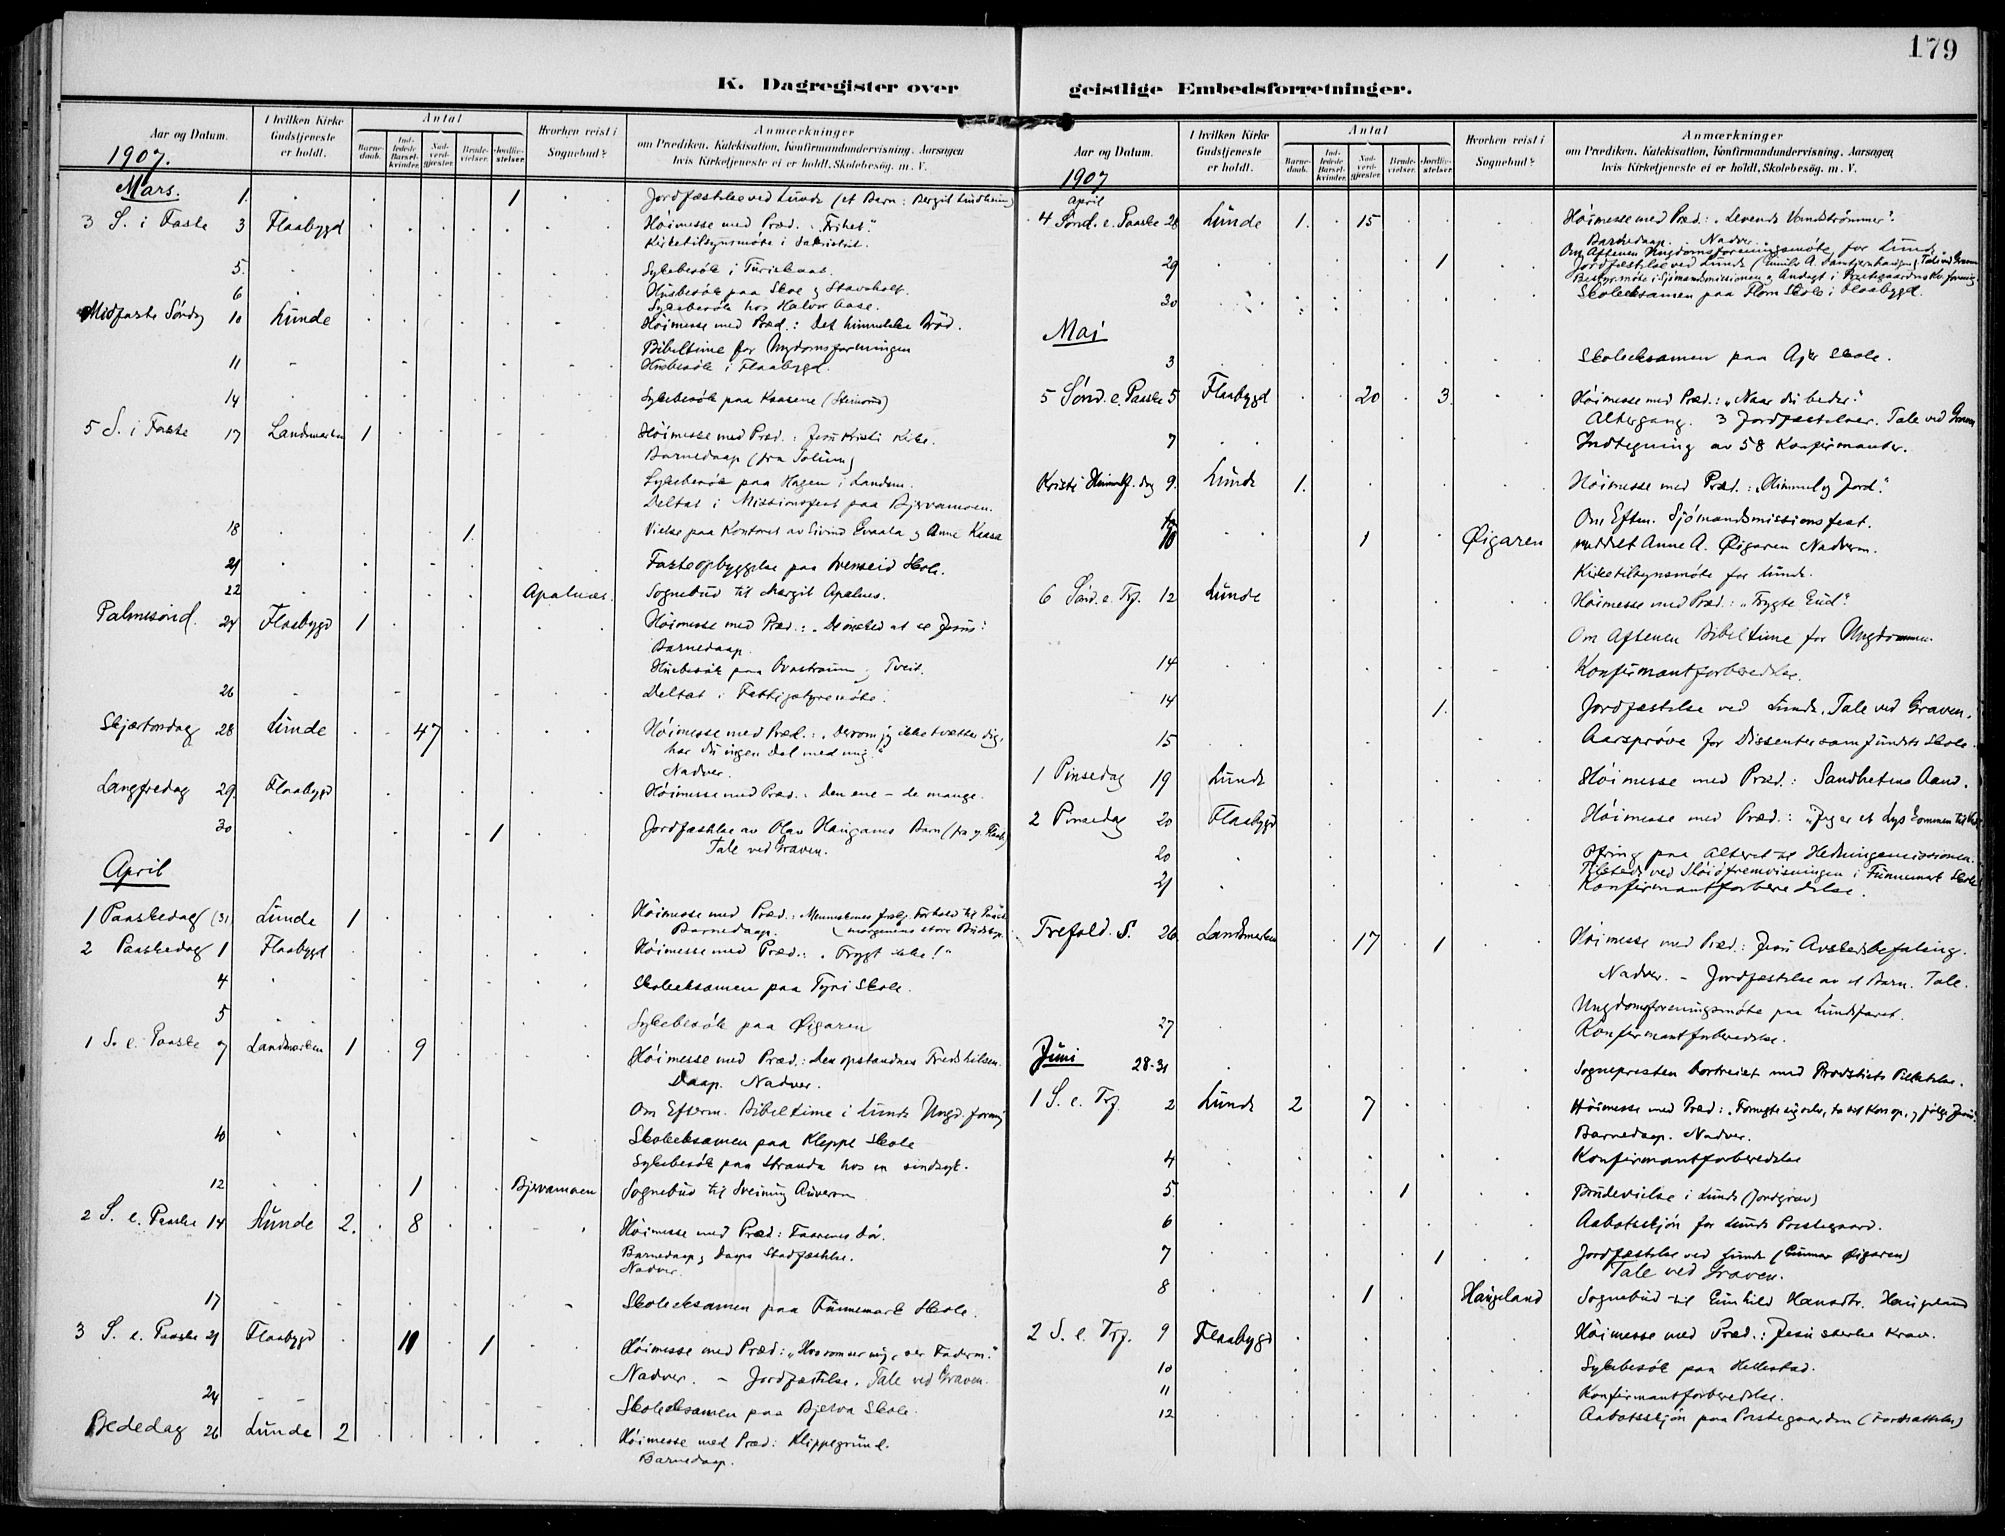 179
K. Dagregister over geistlige Embedsforretninger.
Aar og Datum.
I hvilken Kirke Gudstjeneste er holdt.
Antal
Barnedaab.
Indledede Barselkvinder.
Nadverdgjester.
Brudevielser.
Jordfæstelser.
Hvorhen reist i Sognebud?
Anmærkninger
om Prædiken, Katekisation, Konfirmandundervisning, Aarsagen
hvis Kirketjeneste ei er holdt, Skolebesøg. m. V.
1907.
Mars. 1. 1 Jordfæstelse ved Lunde (et Barn: Bergit Lindheim)
3 S. i Faste 3 Flaabygd Höimesse med Præd. "Frihet".
Kirketilsynsmöte i Sakristiet.
5. Sykebesök i
6 Husbesök paa Skoe og Stavsholt.
Sykebesök hos Halvor Aase.
Midfaste Söndag 10 Lunde Höimesse med Præd.: Det himmelske Bröd.
Bibeltime for Ungdomsforeningen
11 Husbesök i Flaabygd.
14 Sykebesök paa Kaasene
5 S. i Faste 17 Landsmarken 1 Höimesse med Præd.: Jesu Kristi Kirke.
Barnedaap (fra Solum)
Sykebesök paa Hagen i Landsm.
Deltat i Missionsfest paa Bjervamoen.
18 1 Vielse paa Kontoret av Eivind Svaala og Anne Kaasa
21 Fasteopbyggelse paa Svenseid Skole.
22 Apalnes. Sognebud til Margit Apalnes.
Palmesönd. 24 Flaabygd 1 Höimesse med Præd.: De ønsked at se Jesus.
Barnedaap.
Husbesök paa Ovastraum og Tveit.
26 Deltat i Fattigstyremöte.
Skjærtorsdag 28 Lunde 47 Höimesse med Præd.: "Dersom jeg ikke tvætter dig,
har du ingen del med mig."
Nadver.
Langfredag 29. Flaabygd Höimesse med Præd.: Den ene – de mange.
30 1 Jordfæstelse av Olav Haugans Barn
Tale ved Graven.
April
1 Paaskedag (31 Lunde 1 Höimesse med Præd.: Menneskenes Forhold til Paaske
Barnedaap. morgenens store Budskap.
2 Paaskedag 1 Flaabygd Höimesse med Præd.: "Frygt ikke!"
4 Skoleeksamen paa Tyri Skole.
5 Sykebesök paa Øigaren
1 S. e. Paaske 7 Landsmarken 1 9 Höimesse med Præd.: Den opstandnes Fredshilsen.
Daap. Nadver.
Om Efterm. Bibeltime i Lunde Ungd. forening
10 Skoleeksamen paa Kleppe Skole
Sykebesök paa Stranda hos en sindsyk.
12 1 Bjervamoen Sognebud til Sveinung
2 S. e. Paaske 14 Lunde 2. 8 Höimesse med Præd: Faarenes dör.
Barnedaap og Daaps Stadfæstelse.
Nadver.
17 Skoleeksamen paa Funnemark Skole.
3 S. e. Paaske 21 Flaabygd 11 1 Höimesse med Præd: "Hvo som ser mig, ser Faderen."
Nadver. – Jordfæstelse. Tale ved Graven.
24 Skoleeksamen paa Bjerva Skole.
Bededag 26 Lunde 2 Höimesse med Præd: Klippegrund.
Barnedaap.
Aar og Datum.
I hvilken Kirke Gudstjeneste er holdt.
Antal
Barnedaab.
Indledede Barselkvinder.
Nadverdgjester.
Brudevielser.
Jordfæstelser.
Hvorhen reist i Sognebud?
Anmærkninger
om Prædiken, Katekisation, Konfirmandundervisning, Aarsagen
hvis Kirketjeneste ei er holdt, Skolebesøg. m. V.
1907
April
4 Sönd. e. Paaske 28 Lunde 1. 15 Höimesse med Præd.: "Levende Vandströmmer".
Barnedaap. Nadver.
Om Aftenen Ungdomsforeningsmöte for Lunde
29 1 Jordfæstelse ved Lunde Tale ved Graven
Bestyrmöte i Sjömandsmissionen og Andagt i Prestegaardens
30 Skoleeksamen paa Flom Skole i Flaabygd.
Mai
3 Skoleeksamen paa Ajer Skole.
5 Sönd. e. Paaske 5 Flaabygd 20 3. Höimesse med Præd.: "Naar du beder."
Altergang. 3 Jordfæstelser. Tale ved Graven
7 Indtegning av 58 Konfirmanter.
Kristi Himmelf. dag 9. Lunde 1. Höimesse med Præd.: "Himmel og Jord".
Om Efterm. Sjömandsmissionsfest.
10 1 Øigaren meddelt Anne A. Øigaren Nadverm.
Kirketilsynsmöte for Lunde.
6 Sönd. e. 12 Lunde Höimesse med Præd.: "Frygte Gud".
Om Aftenen Bibeltime for Ungdommen.
14 Konfirmantforberedelse.
14 1. Jordfæstelse ved Lunde. Tale ved Graven.
15 Aarspröve for Dissentersamfundets Skole.
1 Pinsedag 19 Lunde Höimesse med Præd.: Sandhetens Aand.
2 Pinsedag 20 Flaabygd Höimesse med Præd.: "Jeg er et Lys kommen til Verden
20 Ofring paa Alteret til Hedningemissionen.
Tilstede ved Slöidfremvisningen i Funnemark Skole
21 Konfirmantforberedelse.
Trefold. S. 26 Landsmarken 17 1 Höimesse med Præd.: Jesu Avskedsbefaling.
Nadver. – Jordfæstelse av et Barn. Tale.
Ungdomsforeningsmöte paa
27 Konfirmantforberedelse.
Juni 28-31 Sognepresten bortreist med Prostiets Tilladelse.
1 S. e. Trf 2 Lunde 2 7 Höimesse med Præd.: "Fornegte sig selv, ta sit Kors op, og følge Jesus
Barnedaap. Nadver.
4 Konfirmantforberedelse
5. 1 Brudevielse i Lunde (Jordgrav)
6 Aabotsskjön for Lunde Prestegaard.
7 1 Jordfæstelse ved Lunde (Gunnar Øigaren)
Tale ved Graven.
8 1 Haugeland Sognebud til Gunhild Hansdtr. Haugeland
2 S. e. Trf. 9 Flaabygd Höimesse med Præd.: Jesu sterke Krav.
10 Sykebesök paa Hellestad.
11 Konfirmantforberedelse.
12 Aabotsskjön paa Prestegaarden (Fortsættelse)